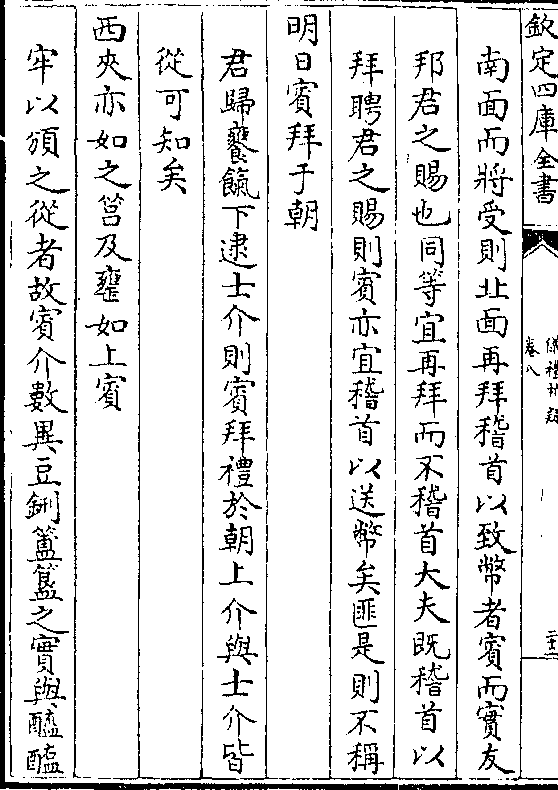 欽定四庫全書
卷八
南面而將受則北面再拜稽首以致幣者賓而實友
邦君之賜也同等宜再拜而不稽首大夫既稽首以
拜聘君之賜則賓亦宜稽首以送幣矣匪是則不稱
明日賓拜于朝
君歸饔餼下逮士介則賓拜禮於朝上介與士介皆
從可知矣
西夾亦如之筥及罋如上賓
牢以頒之從者故賓介數異豆鉶簠簋之實與醯醢